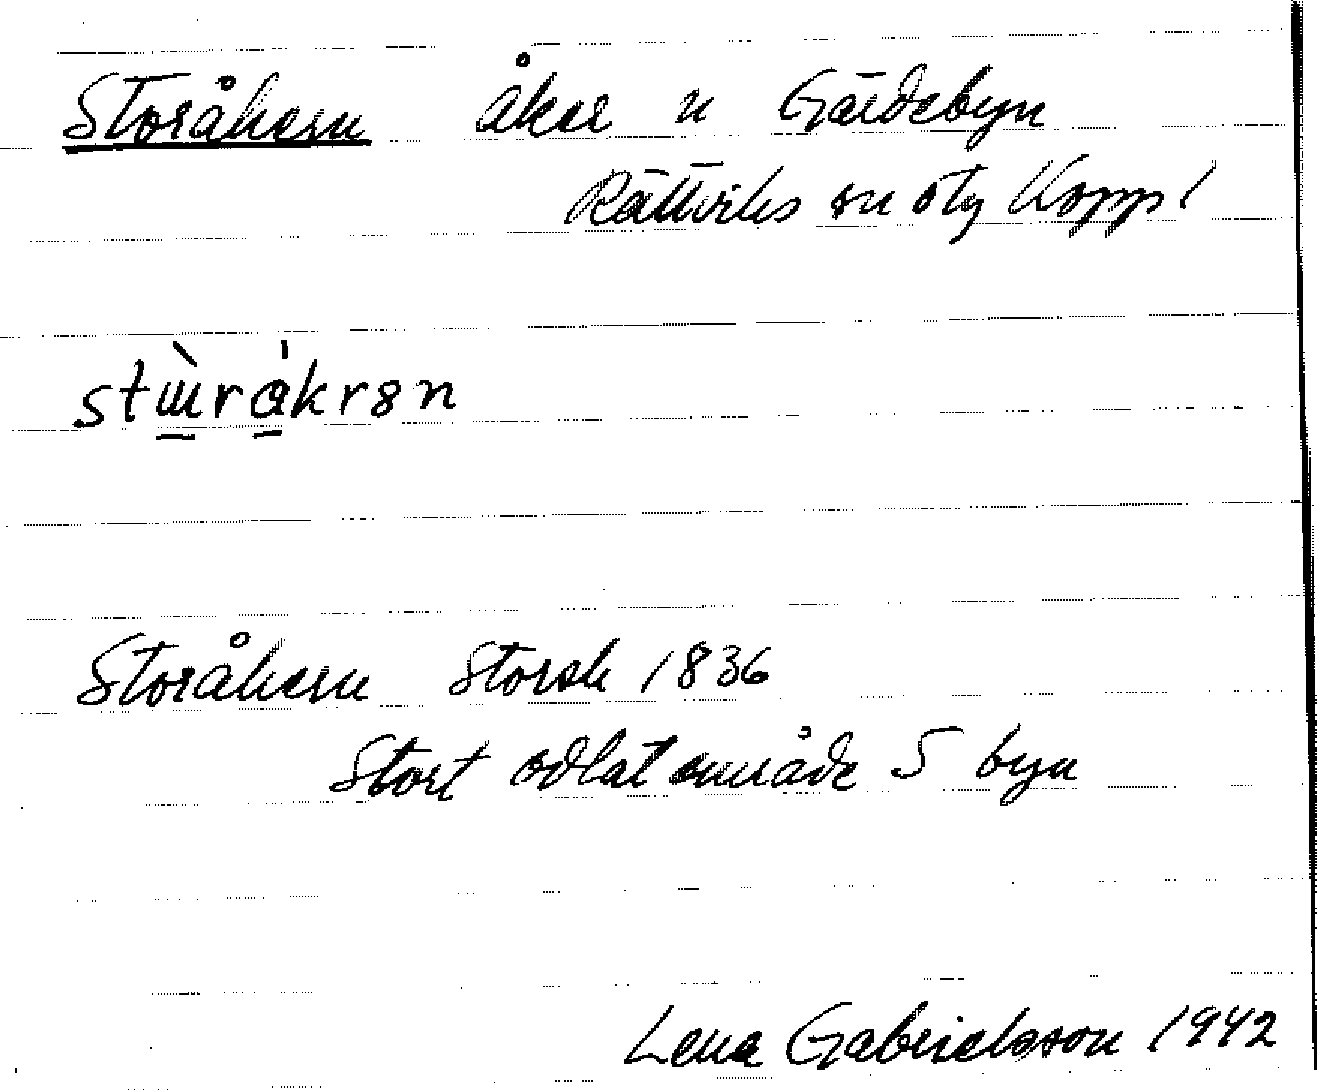 Storåkern åker n Gärdebyn
Rättviks sn östg Koppl
stɯ̀rɑ̇krən
Storåkern Storsk 1836
Stort odlat område S byn
Lena Gabrielsson 1942